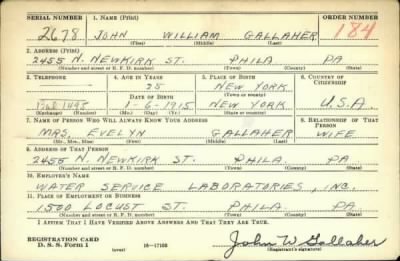 SERIAL NUMBER 1. NAME (Print) ORDER NUMBER
2678 JOHN WILLIAM GALLAHER 184
(First) (Middle) (Last)
2. ADDRESS (Print)
2455 N. NEWKIRK ST. PHILA PA
(Number and street or R. F. D. number) (Town or county) (State)
3. TELEPHONE 4. AGE IN YEARS 5. PLACE OF BIRTH 6. COUNTRY OF CITIZENSHIP
25 NEW YORK
DATE OF BIRTH (Town or county)
1498 1-6-1915 NEW YORK U.S.A.
(Exchange) (Number) (Mo.) (Day) (Yr.) (State or country)
7. NAME OF PERSON WHO WILL ALWAYS KNOW YOUR ADDRESS 8. RELATIONSHIP OF THAT PERSON
MRS. EVELYN GALLAHER WIFE
(Mr., Mrs., Miss) (First) (Middle) (Last)
9. ADDRESS OF THAT PERSON
2455 N. NEWKIRK ST. PHILA. PA
(Number and street or R. F. D. number) (Town or county) (State)
10. EMPLOYER'S NAME
WATER SERVICE LABORATORIES, INC.
11. PLACE OF EMPLOYMENT OR BUSINESS
1500 LOCUST ST. PHILA. PA.
(Number and street or R. F. D. number) (Town or county) (State)
I AFFIRM THAT I HAVE VERIFIED ABOVE ANSWERS AND THAT THEY ARE TRUE.
REGISTRATION CARD
D. S. S. FORM 1 (over) 16-17105 John W Gallaher
(Registrant's signature)